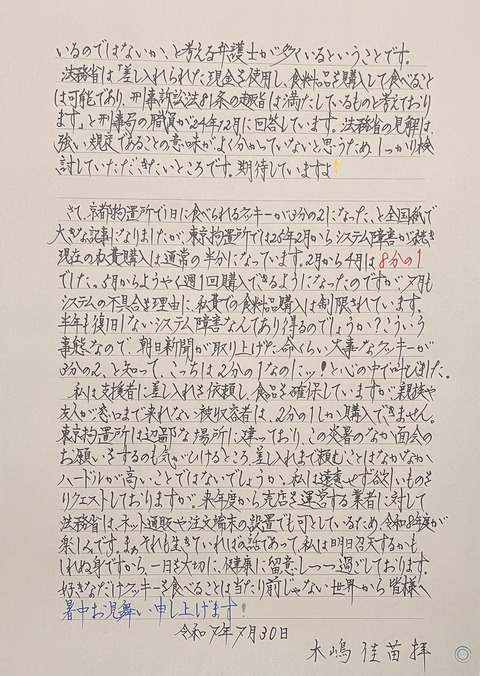 いるのではないか、と考える弁護士が多くいるということです。
法務省は「差し入れられた現金を使用し、食料品を購入して食べること
は可能であり、刑事訴訟法81条の趣旨は満たしているものと考えており
ます」と刑事局の職員が24年12月に回答しています。法務省の見解は、
強い規定であることの意味がよくわかっていないと思うため、しっかり検
討していただきたいところです。期待していますよ!
さて、京都拘置所で1日に食べられるクッキーが3分の2になった、と全国紙で
大きな記事になりましたが、東京拘置所では25年2月からシステム障害が続き
現在の私費購入は通常の半分になっています。2月から4月は8分の1
でした。5月からようやく週1回購入できるようになったのですが、7月も
システムの不具合を理由に、私費での食料品購入は制限されています。
半年も復旧しないシステム障害なんてあり得るのでしょうか?こういう
事態なので、朝日新聞が取り上げた命くらい大事なクッキーが
3分の2、と知って、こっちは2分の1なのにッ!と心の中で叫びました。
私は支援者に差し入れを依頼し、食品を確保していますが、親族や
友人が窓口まで来れない被収容者は、2分の1しか購入できません。
東京拘置所は辺鄙な場所に建っており、この炎暑のなか面会の
お願いをするのも気がひけるところ、差し入れまで頼むことはなかなか
ハードルが高いことではないでしょうか。私は遠慮せず欲しいものを
リクエストしておりますが。来年度から売店を運営する業者に対して
法務省は、ネット通販や注文端末の設置でも可としているため、令和8年度が
楽しみです。まぁ、それも生きていればの話であって、私は明日召天するかも
しれぬ身ですから一日を大切に、健康に留意しつつ過ごしております。
好きなだけクッキーを食べることは当たり前じゃない世界から皆様へ
暑中お見舞い申し上げます!
令和7年7月30日
木嶋佳苗 拝